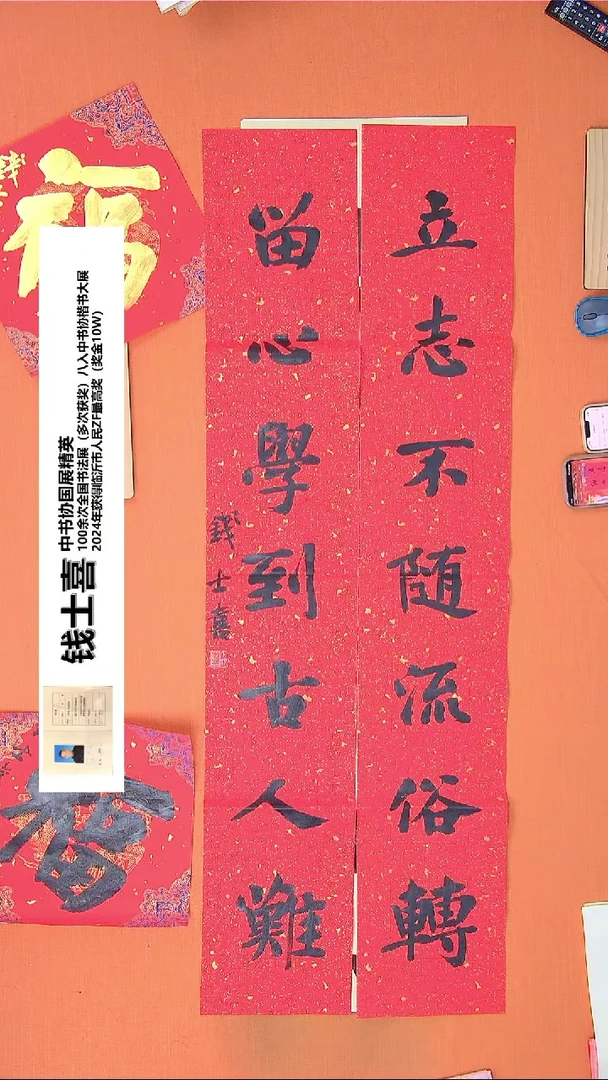 立志不随流俗轉
留心學到古人難
錢士喜
钱士喜
中书协国展精英
100余次全国书法展（多次获奖）八入中书协楷书大展
2024年获得临沂市人民ZF最高奖（奖金10W）
福
福